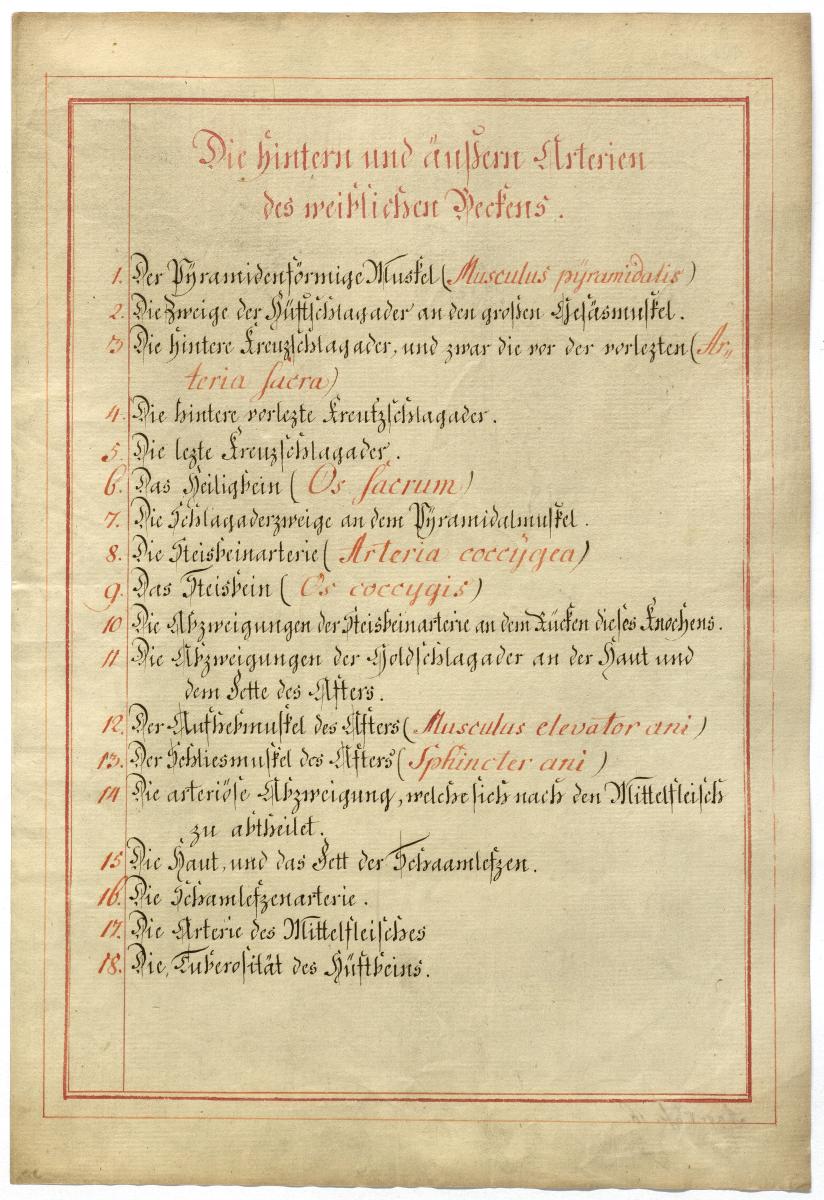 Die hintern und äußern Arterien
des weiblichen Beckens.
1. Der Pÿramidenförmige Muskel (Musculus pÿramidalis)
2. Die Zweige der Hüftschlagader an den großen Gesäsmuskel.
3 Die hintere Kreuzschlagader, und zwar die vor der vorlezten (Ar„
teria sacra)
4. Die hintere vorlezte Kreutzschlagader.
5. Die lezte Kreuzschlagader.
6. Das Heiligbein (Os sacrum)
7. Die Schlagaderzweige an dem Pÿramidalmuskel.
8. Die Steisbeinarterie (Arteria coccÿgea)
9. Das Steisbein (Os coccygis)
10 Die Abzweigungen der Steisbeinarterie an dem Rücken dieses Knochens.
11 Die Abzweigungen der Goldschlagader an der Haut und
dem Fette des Afters.
12. Der Aufhebmuskel des Afters (Musculus elevator ani)
13. Der Schliesmuskel des Afters (Sphincter ani)
14 Die arteriöse Abzweigung, welche sich nach den Mittelfleisch
zu abtheilet.
15 Die Haut, und das Fett der Schaamlefzen.
16. Die Schamlefzenarterie.
17. Die Arterie des Mittelfleisches
18. Die Tuberosität des Hüftbeins.